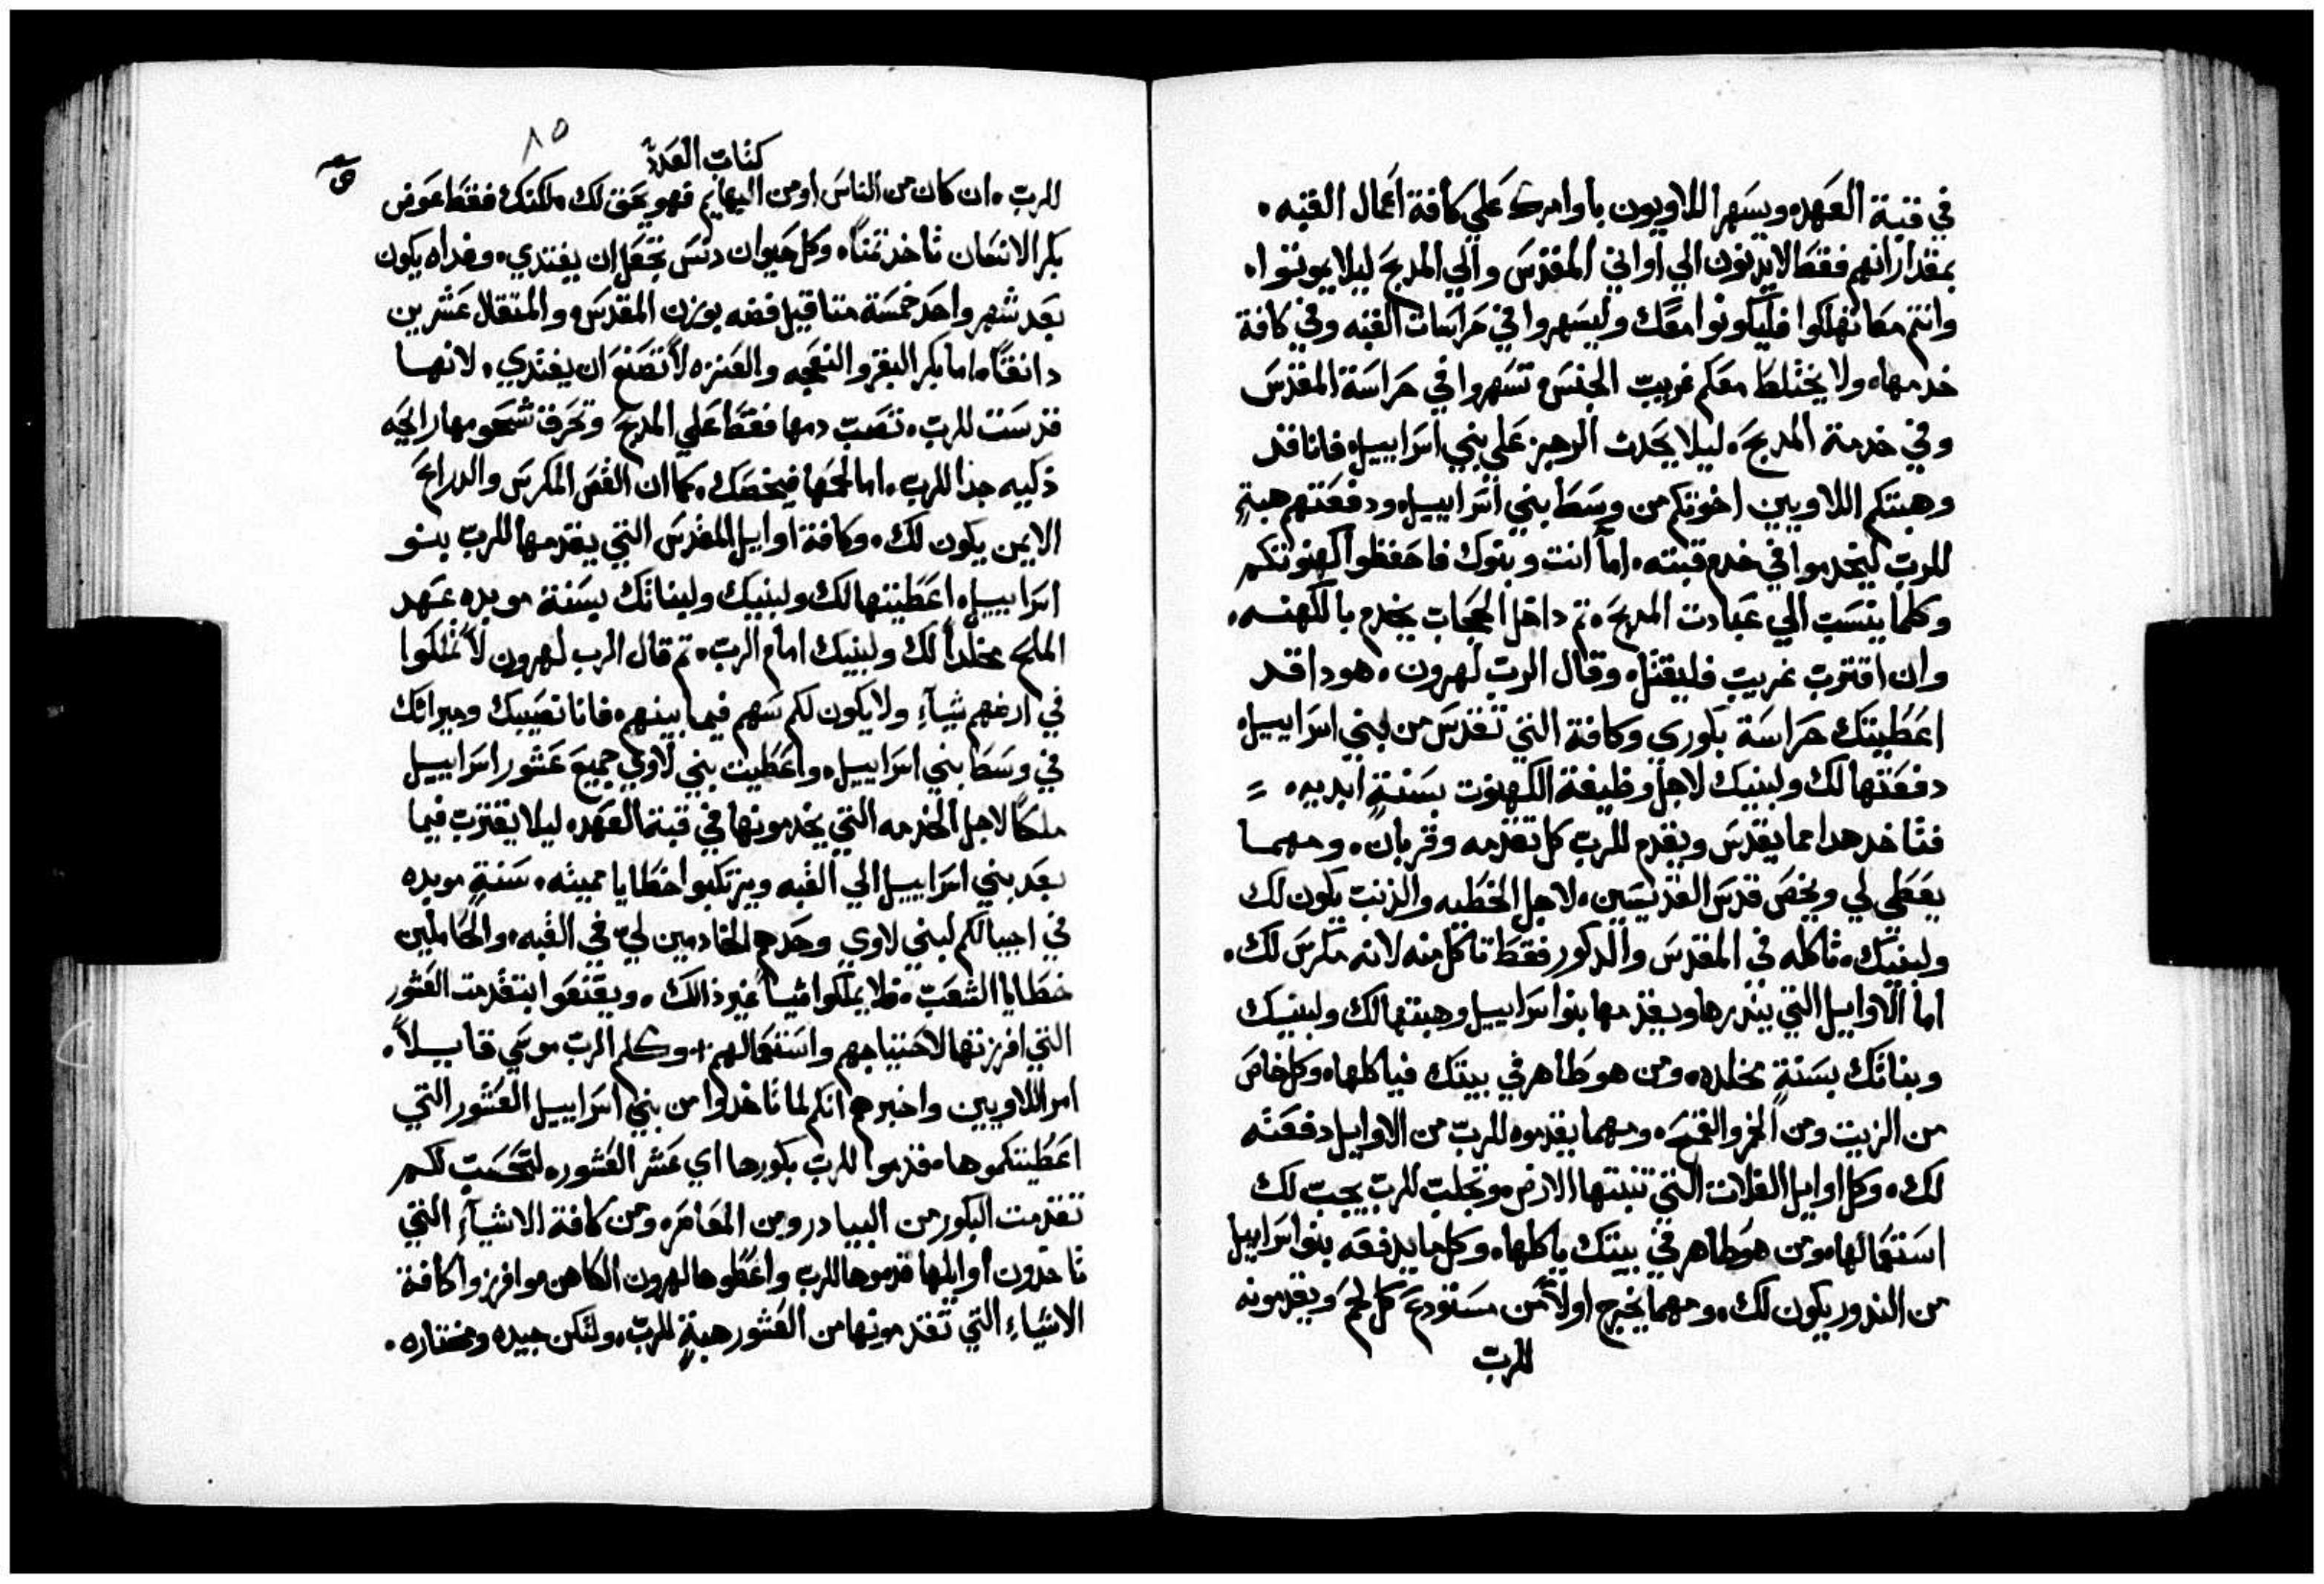 في قبة العهد، ويسهر اللاويون باوامرك علي كافة اعمال القبه،
بمقدار انهم فقط لا يدنون الي اواني المقدس والي المدبح ليلا يموتوا،
وانتم معا تهلكوا فليكونوا معك وليسهروا في حراسات القبه وفي كافة
خدمها، ولا يختلط معكم غريب الجنس، تسهروا في حراسة المقدس
وفي خدمة المدبح، ليلا يحدث الرجز علي بني اسراييل، فانا قد
وهبتكم اللاويين اخوتكم من وسط بني اسراييل، ودفعتهم هبةٍ
للرب ليخدموا في خدم قبته، اما انت وبنوك فاحفظوا كهنوتكم
وكلما ينسب الي عبادت المدبح، ثم داخل الحجاب يخدم بالكهنه،
وان اقترب غريب فليقتل، وقال الرب لهرون، هودا قد
اعطيتك حراسة بكوري وكافة التي تقدس من بني اسراييل،
دفعتها لك ولبنيك لاجل وظيفة الكهنوت بسنةٍ ابديه، =
فتاخد هدا مما يقدس ويقدم للرب كل تقدمه وقربان، ومهما
يعطي لي ويخص قدس القديسين، لاجل الخطيه والذنب يكون لك
ولبنيك، تاكله في المقدس والدكور فقط تاكل منه لانه مكرس لك،
اما الاوايل التي ينذرها ويقدمها بنوا اسراييل وهبتها لك ولبنيك
وبناتك بسنةٍ مخلده، ومن هو طاهر في بيتك فياكلها، وكل خاص
من الزيت ومن الخمر والقمح، ومهما يقدموه للرب من الاوايل دفعته
لك، وكل اوايل الغلات التي تنبتها الارض، وتجلب للرب يجب لك
استعمالها، ومن هو طاهر في بيتك ياكلها، وكل ما يدفعه بنوا اسراييل
من الندور يكون لك، ومهما يخرج اولاً من مستودع كل لحم ويقدمونه
للرب
٨٥
كتاب العدد
للرب، ان كان من الناس او من البهايم فهو يحق لك ملكتك فقط عوض
بكر الانسان تاخد تمناً، وكل حيوان دنس تجعل ان يفتدي، وفداه يكون
بعد شهر واحد خمسة متاقيل فضه بوزن المقدس، والمتقال عشرين
دانقاً، اما بكر البقر والنعجه والعنزه لا تصنع ان يفتدي، لانها
قدست للرب، تصب دمها فقط علي المدبح وتحرق شحومها رايحه
ذكيه جدا للرب، اما لحمها فيخصك، كما ان القص المكرس والدراع
الايمن يكون لك، وكافة اوايل المقدس التي يقدمها للرب بنو
اسراييل، اعطيتها لك ولبنيك ولبناتك بسنة موبده عهد
الملح مخلداً لك ولبنيك امام الرب، ثم قال الرب لهرون لا تملكوا
في ارضهم شيآءٍ ولا يكون لكم سهم فيما بينهم، فانا نصيبك وميراثك
في وسط بني اسراييل، واعطيت بني لاوي جميع عشور اسراييل
ملكاً لاجل الخدمه التي يخدمونها في قبة العهد، ليلا يقترب فيما
بعد بني اسراييل الي القبه ويرتكبوا خطايا مميته، سنةٍ موبده
في اجيالكم لبني لاوي وحدهم الخادمين لي في القبه، والحاملين
خطايا الشعب، فلا يملكوا شيا غير ذالك، ويقنعوا بتقدمت العشور
التي افرزتها لاحتياجهم واستعمالهم + وكلم الرب موسي قايلاً،
امر اللاويين واخبرهم انكم لما تاخدوا من بني اسراييل العشور التي
اعطيتكموها، فقدموا للرب بكورها اي عشر العشور، لتحسب لكم
تقدمت البكور من البيادر ومن المعاصره ومن كافة الاشيآءِ التي
تاخدون اوايلها قدموها للرب واعطوها لهرون الكاهن، وافرزوا كافة
الاشياءِ التي تقدمونها من العشور هبةٍ للرب، ولتكن جيده ومختاره،